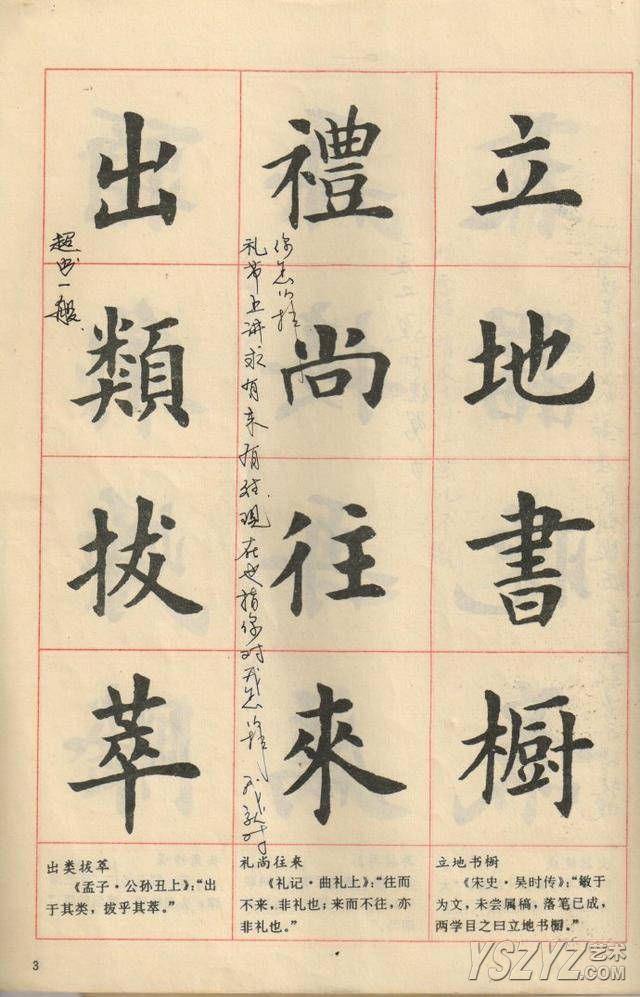 立地書橱
禮尚往來
出類拔萃
礼节上讲求有来有往现在也指你对我怎样我就对
超出一般
出类拔萃
《孟子·公孙丑上》：“出
于其类，拔乎其萃。”
礼尚往来
《礼记·曲礼上》：“往而
不来，非礼也；来而不往，亦
非礼也。”
立地书橱
《宋史·吴时传》：“敏于
为文，未尝属稿，落笔已成，
两学目之曰立地书橱。”
3
YSZYZ艺术
.com